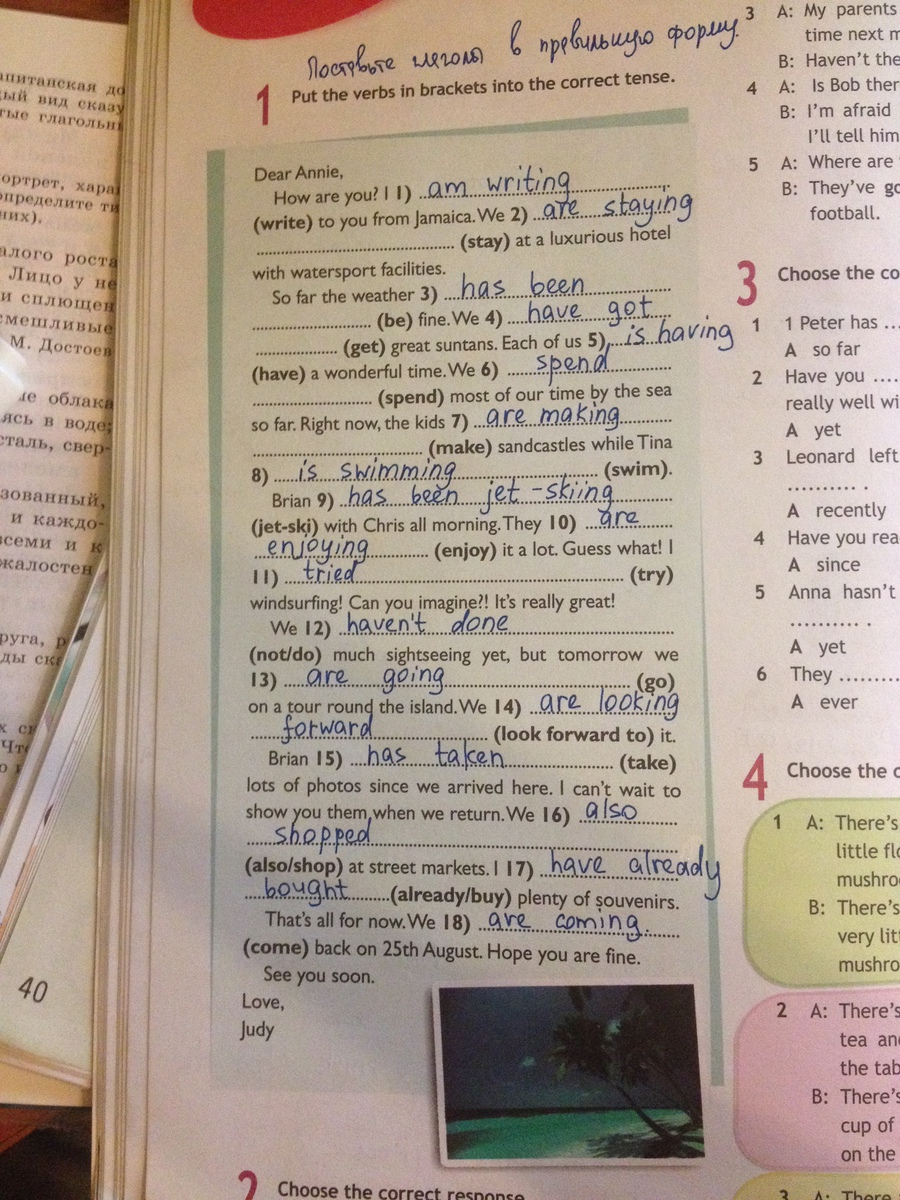 Поставьте глаголы в правильную форму.
1 Put the verbs in brackets into the correct tense.
Dear Annie,
How are you? I 1) am writing
(write) to you from Jamaica. We 2) are staying
(stay) at a luxurious hotel
with watersport facilities.
So far the weather 3) has been
(be) fine. We 4) have got
(get) great suntans. Each of us 5) is having
(have) a wonderful time. We 6) spend
(spend) most of our time by the sea
so far. Right now, the kids 7) are making
(make) sandcastles while Tina
8) is swimming (swim).
Brian 9) has been jet-skiing
(jet-ski) with Chris all morning. They 10) are
enjoying (enjoy) it a lot. Guess what! I
11) tried (try)
windsurfing! Can you imagine?! It's really great!
We 12) haven't done
(not/do) much sightseeing yet, but tomorrow we
13) are going (go)
on a tour round the island. We 14) are looking
forward (look forward to) it.
Brian 15) has taken (take)
lots of photos since we arrived here. I can't wait to
show you them when we return. We 16) also
shopped
(also/shop) at street markets. I 17) have already
bought (already/buy) plenty of souvenirs.
That's all for now. We 18) are coming.
(come) back on 25th August. Hope you are fine.
See you soon.
Love,
Judy
2 Choose the correct response
40
апитанская до
ый вид сказу
тые глагольн
ортрет, хара
определите ти
них).
алого роста
Лицо у не
и сплющен
смешливые
М. Достоев
ые облака
ясь в воде;
сталь, свер-
зованный,
и каждо-
семи и к
жалостен
3 A: My parents
time next m
B: Haven't the
4 A: Is Bob ther
B: I'm afraid
I'll tell him
5 A: Where are
B: They've go
football.
3 Choose the co
1 1 Peter has ...
A so far
2 Have you ....
really well wi
A yet
3 Leonard left
.......... .
A recently
4 Have you rea
A since
5 Anna hasn't
.......... .
A yet
6 They .........
A ever
4 Choose the c
1 A: There's
little flo
mushro
B: There's
very litt
mushro
2 A: There's
tea and
the tab
B: There's
cup of
on the
3 A: There